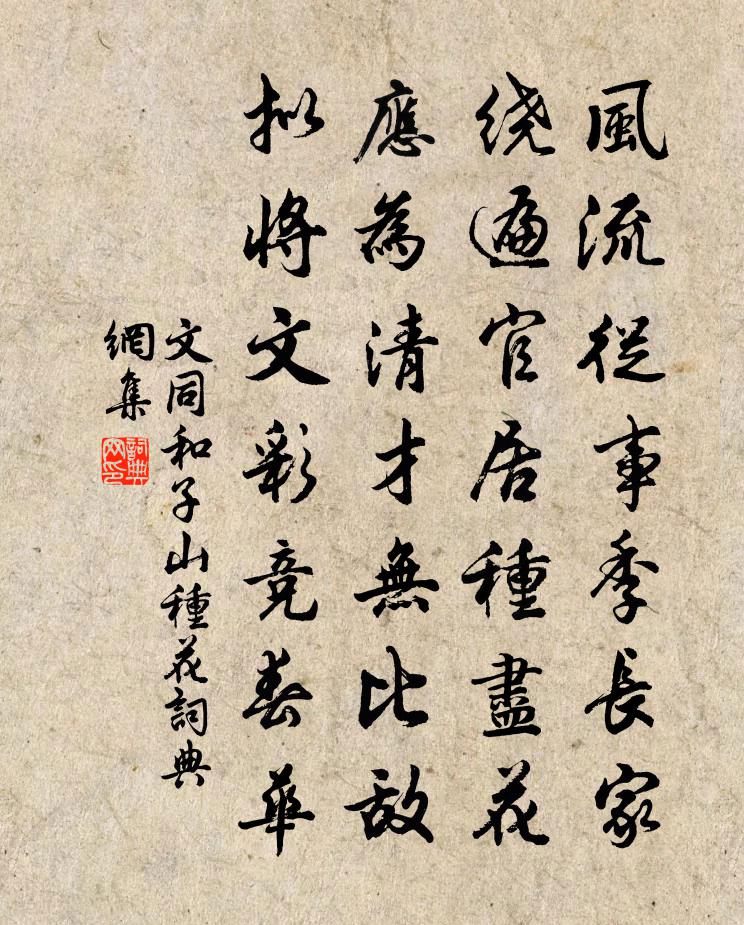 風流従事季長家
繞遍官居種盡花
應為清才無比敵
拟將文彩競春華
文同和子山種花詞典
網集
詞典
网印